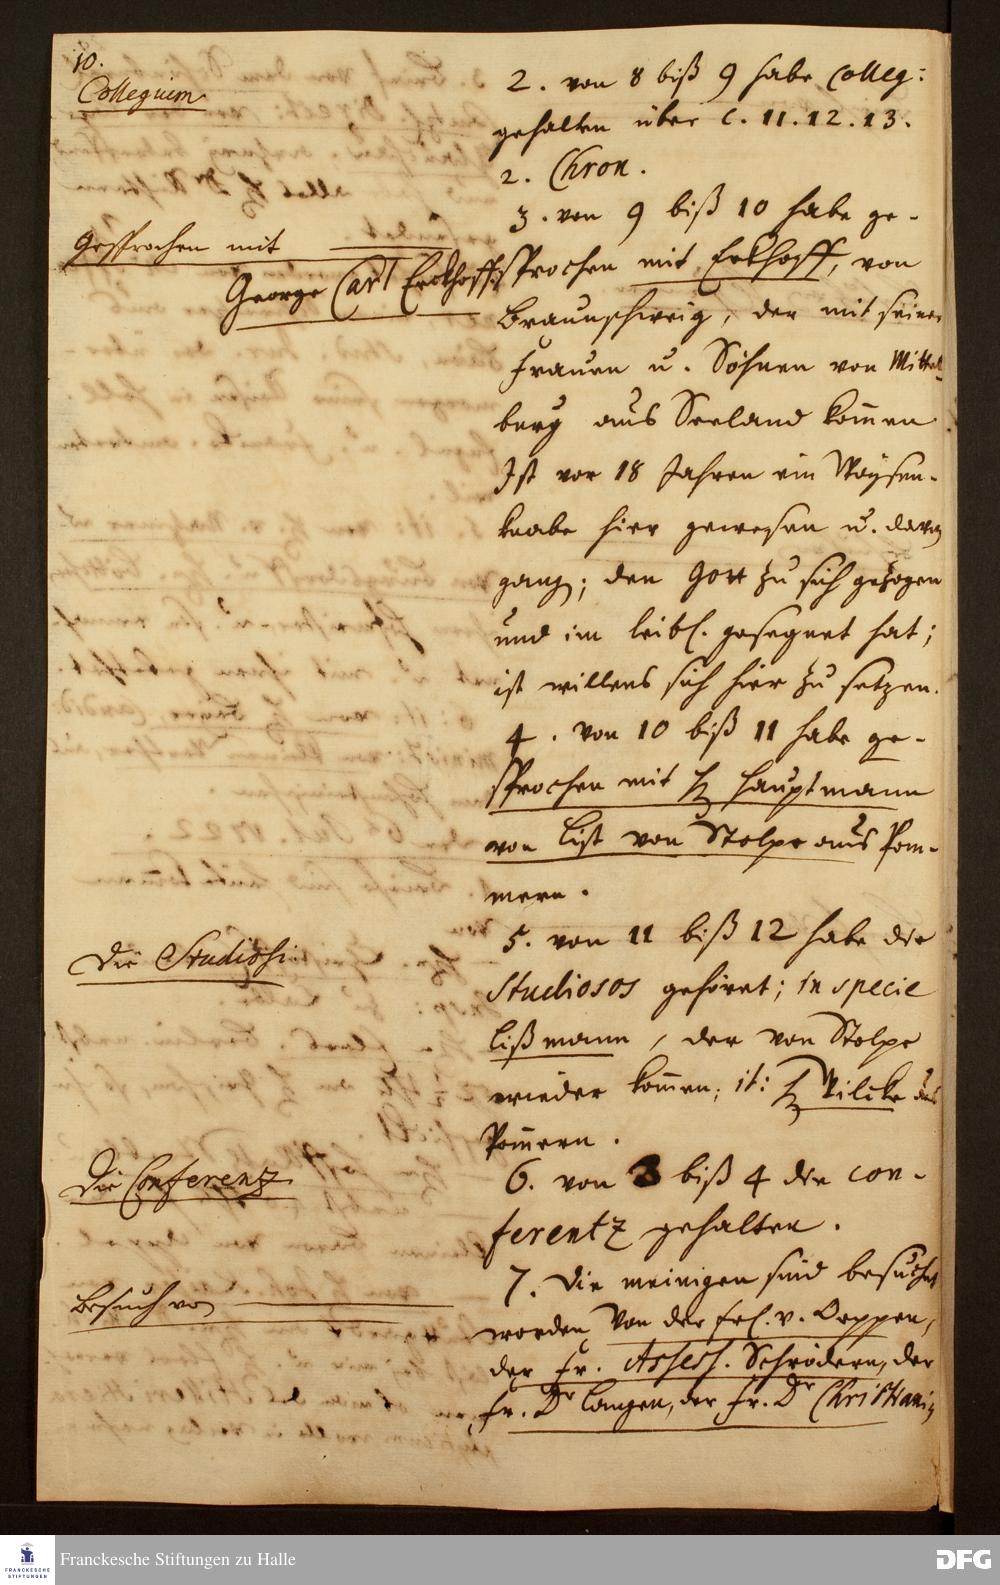 10.
Collegium
2. von 8 biß 9 habe Colleg:
gehalten über C. 11. 12. 13.
2. Chron.
3. von 9 biß 10 habe ge-
Gesprochen mit
sprochen mit Erkhoff, von
George Carl Erckhoff
Braunschweig, der mit seiner
Frauen u. Söhnen von Mittel-
berg aus Seeland kommen
Ist vor 18 Jahren ein Waysen-
knabe hier gewesen u.
; den Gott zu sich gezogen
und im leibl. gesegnet hat;
ist willens sich hier zu setzen.
4. von 10 biß 11 habe ge-
sprochen mit H Hauptmann
von List von Stolpe aus Pom-
mern.
Die Studiosi
5. von 11 biß 12 habe die
Studiosos gehöret; in specie
Lißmann, der von Stolpe
wieder kommen; it: H Vilcke aus
Pommern.
Die Conferenz
6. von 3 biß 4 die con-
ferentz gehalten.
Besuch von
7. Die meinigen sind besucht
worden von der Frl. v. Oeppen,
der Fr. Assess. Schrödern, der
Fr. Dr Langen, der Fr. Dr Christianin
FRANCKESCHE STIFTUNGEN
Franckesche Stiftungen zu Halle
DFG